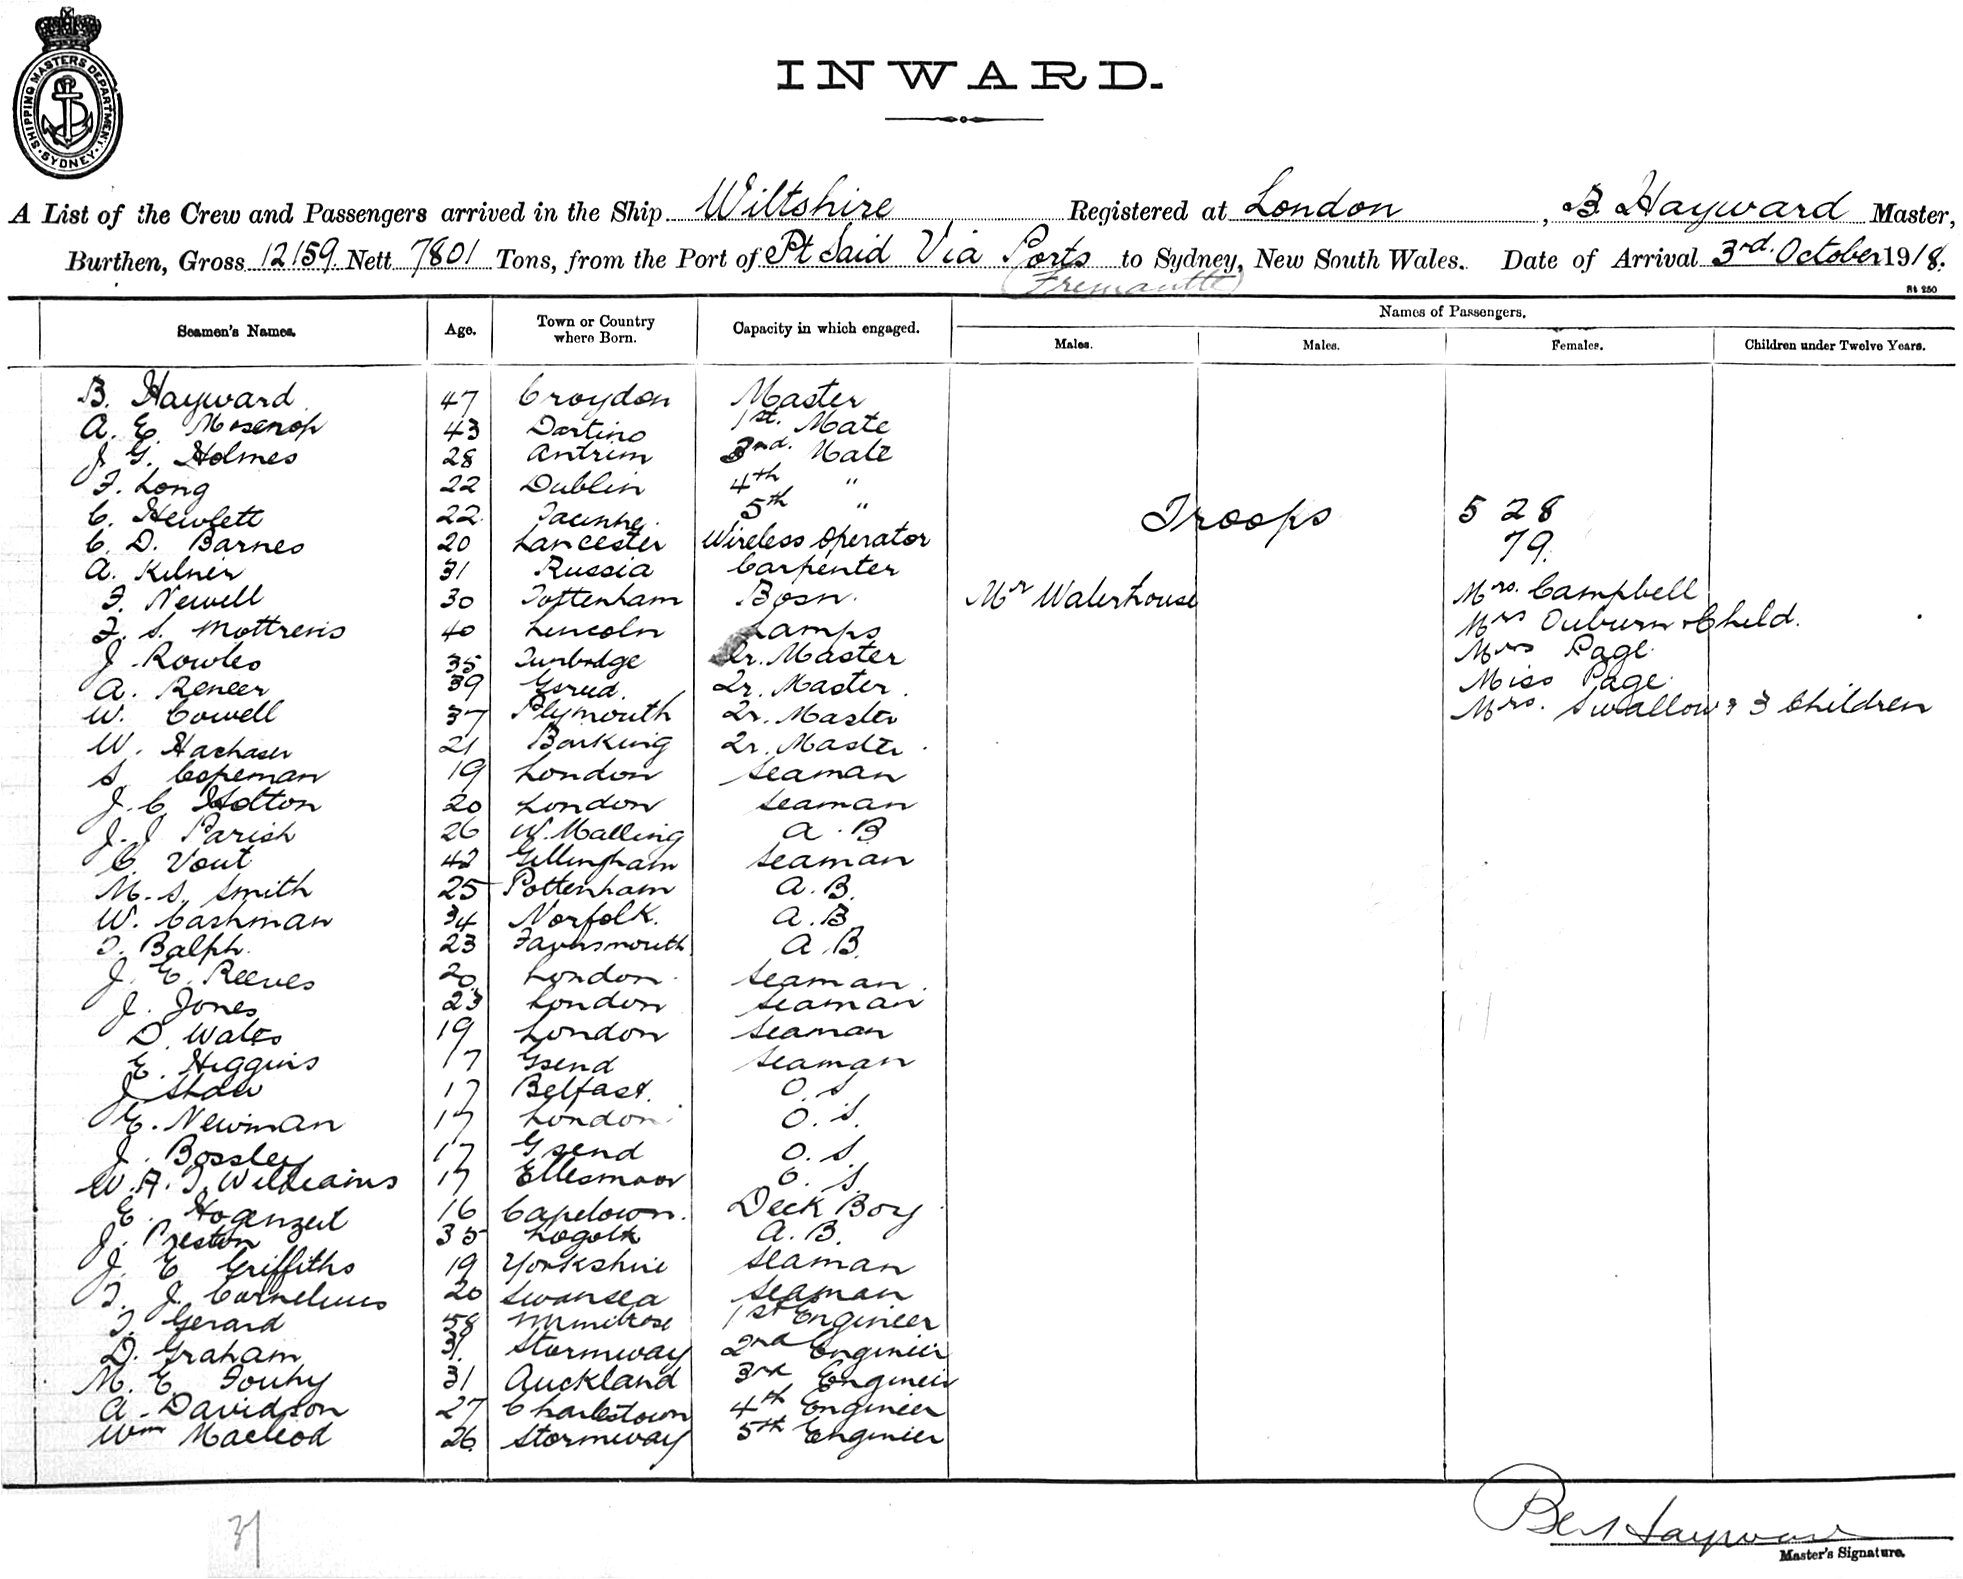 SHIPPING MASTERS DEPARTMENT
SYDNEY
INWARD.
A List of the Crew and Passengers arrived in the Ship Wiltshire Registered at London, B Hayward Master,
Burthen, Gross 12159 Nett 7801 Tons, from the Port of Pt Said Via Ports to Sydney, New South Wales. Date of Arrival 3rd. October 1918.
(Fremantle)
St 250
Seamen's Names. Age. Town or Country where Born. Capacity in which engaged. Names of Passengers.
Males. Males. Females. Children under Twelve Years.
B. Hayward 47 Croydon Master
A. E. 43 1st. Mate
J. G. Holmes 28 Antrim 3nd. Mate
F. Long 22 Dublin 4th "
C. Hewlett 22 5th " Troops 528
C. D. Barnes 20 Lancester Wireless Operator 79.
A. Kilner 31 Russia Carpenter
F. Newell 30 Tottenham Bosn. Mr Waterhouse Mrs. Campbell
F. S. 40 Lincoln Lamps Mrs & Child.
J. Rowles 35 Tunbridge Qr. Master Mrs Page
A. Reneer 39 Qr. Master. Miss Page
W. Cowell 37 Plymouth Qr. Master Mrs. Swallow & 3 Children
W. 21 Barking Qr. Master
S. Copeman 19 London Seaman
J. C Holton 20 London Seaman
J. J Parish 26 W. Malling A. B
C. Vout 42 Gillingham Seaman
M. S. Smith 25 Pottenham A. B.
W. Cashman 34 Norfolk. A. B
T. Balph. 23 A. B.
J. E. Reeves 20 London. Seaman.
J. Jones 23 London Seaman
D. Wales 19 London Seaman
E. Higgins 17 Gsend Seaman
J Shaw 17 Belfast. O. S
E. Newman 17 London O. S.
J. Bossley 17 Gsend O. S
W. A. T. Williams 17 Ellesmoor O. S.
E. 16 Capetown. Deck Boy
J. Preston 35 A. B.
J. E Griffiths 19 Yorkshire Seaman
T. J. Cornelius 20 Swansea Seaman
T. Gerard 58 1st Engineer
D. Graham 31. Stornway 2nd Engineer
M. E. Fouhy 31 Auckland 3rd Engineer
A. Davidson 27 Charlestown 4th Engineer
Wm Macleod 26 Stornway 5th Engineer
31
Bert Hayward
Master's Signature.